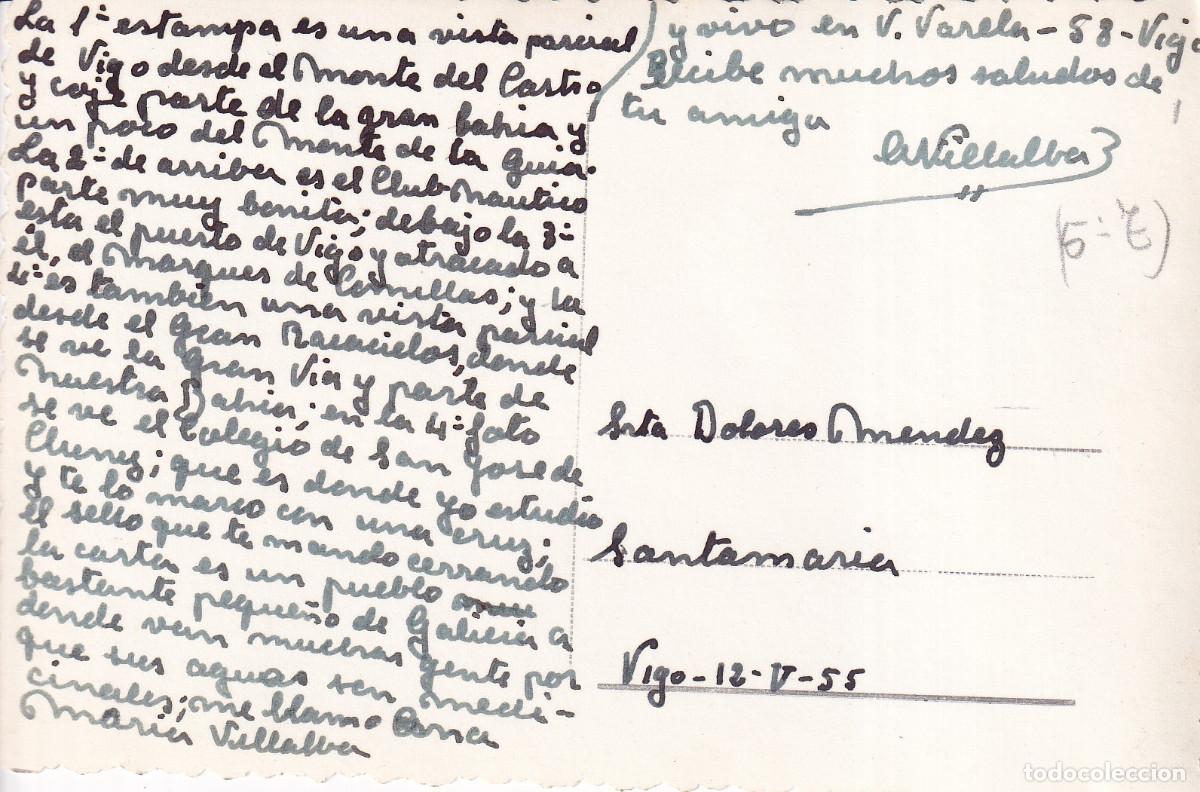 La 1ª estampa es una vista parcial
de Vigo desde el Monte del Castro
y coje parte de la gran bahia y
un poco del Monte de la Guia.
La 2ª de arriba es el Club Nautico
parte muy bonita; debajo la 3ª
esta el puerto de Vigo y atracado a
él, el Marques de Comillas; y la
4ª es tambien una vista parcial
desde el Gran Racacielos, donde
se ve la Gran Via y parte de
nuestra Bahia; en la 4ª foto
se ve el Colegio de San Jose de
Cluny; que es donde yo estudio
y te lo marco con una cruz;
el sello que te mando cerrando
la carta es un pueblo
bastante pequeño de Galicia a
donde van muchas gente por
que sus aguas son medi-
cinales; me llamo Ana
Maria Villalba
y vivo en V. Varela - 58 - Vigo
Recibe muchos saludos de
tu amiga
AVillalba
(5-7)
Srta Dolores Mendez
Santamaria
Vigo-12-V-55
todocoleccion